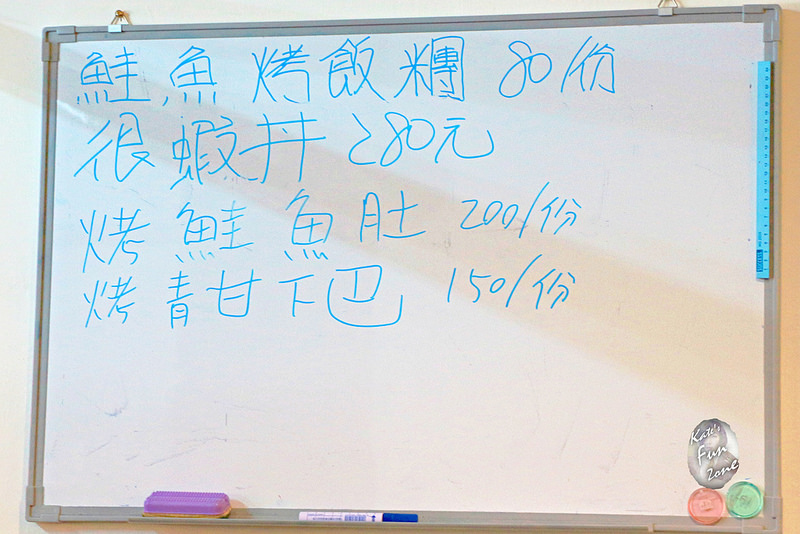 鮭魚烤飯糰 80/份
很蝦丼 280元
烤鮭魚肚 200/份
烤青甘下巴 150/份
Kate's
Fun
Zone